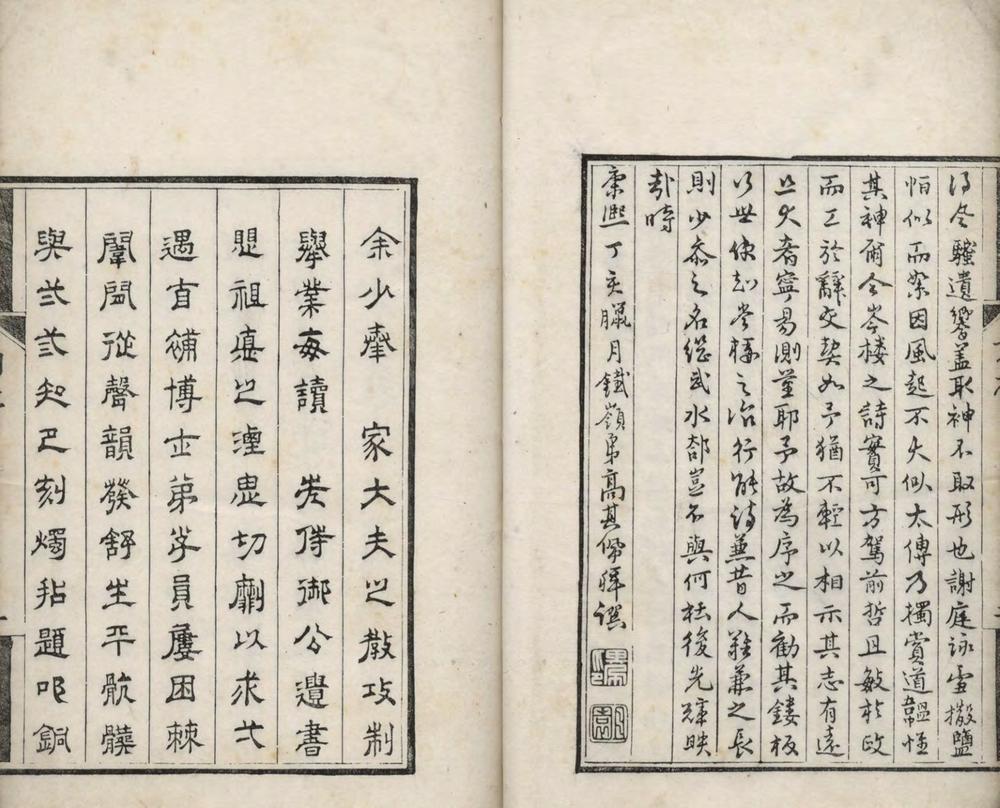 得騷遺響蓋取神不取形也謝庭詠雪撒鹽
恰似而絮因風起不大似太傅乃獨賞道韞惟
其神爾今岑樓之詩實可方駕前哲且敏於政
而工於辭交契如予猶不輕以相示其志有遠
且大者寧易測量耶予故為序之而勸其鏤板
以世使知樓之治行能詩兼昔人難兼之長
則少參之名繼武水部豈不與何杜後先輝映
哉時
康熙丁亥臘月鐵嶺弟高其佩拜譔
余少奉 家大夫之教攻制
舉業每讀 先侍御公遺書
愳祖悳之湮思切劘以求弌
遇自補博士弟子員屢困棘
闈間從聲韻發舒生平骯髒
與弍弎知己刻燭拈題叩銅